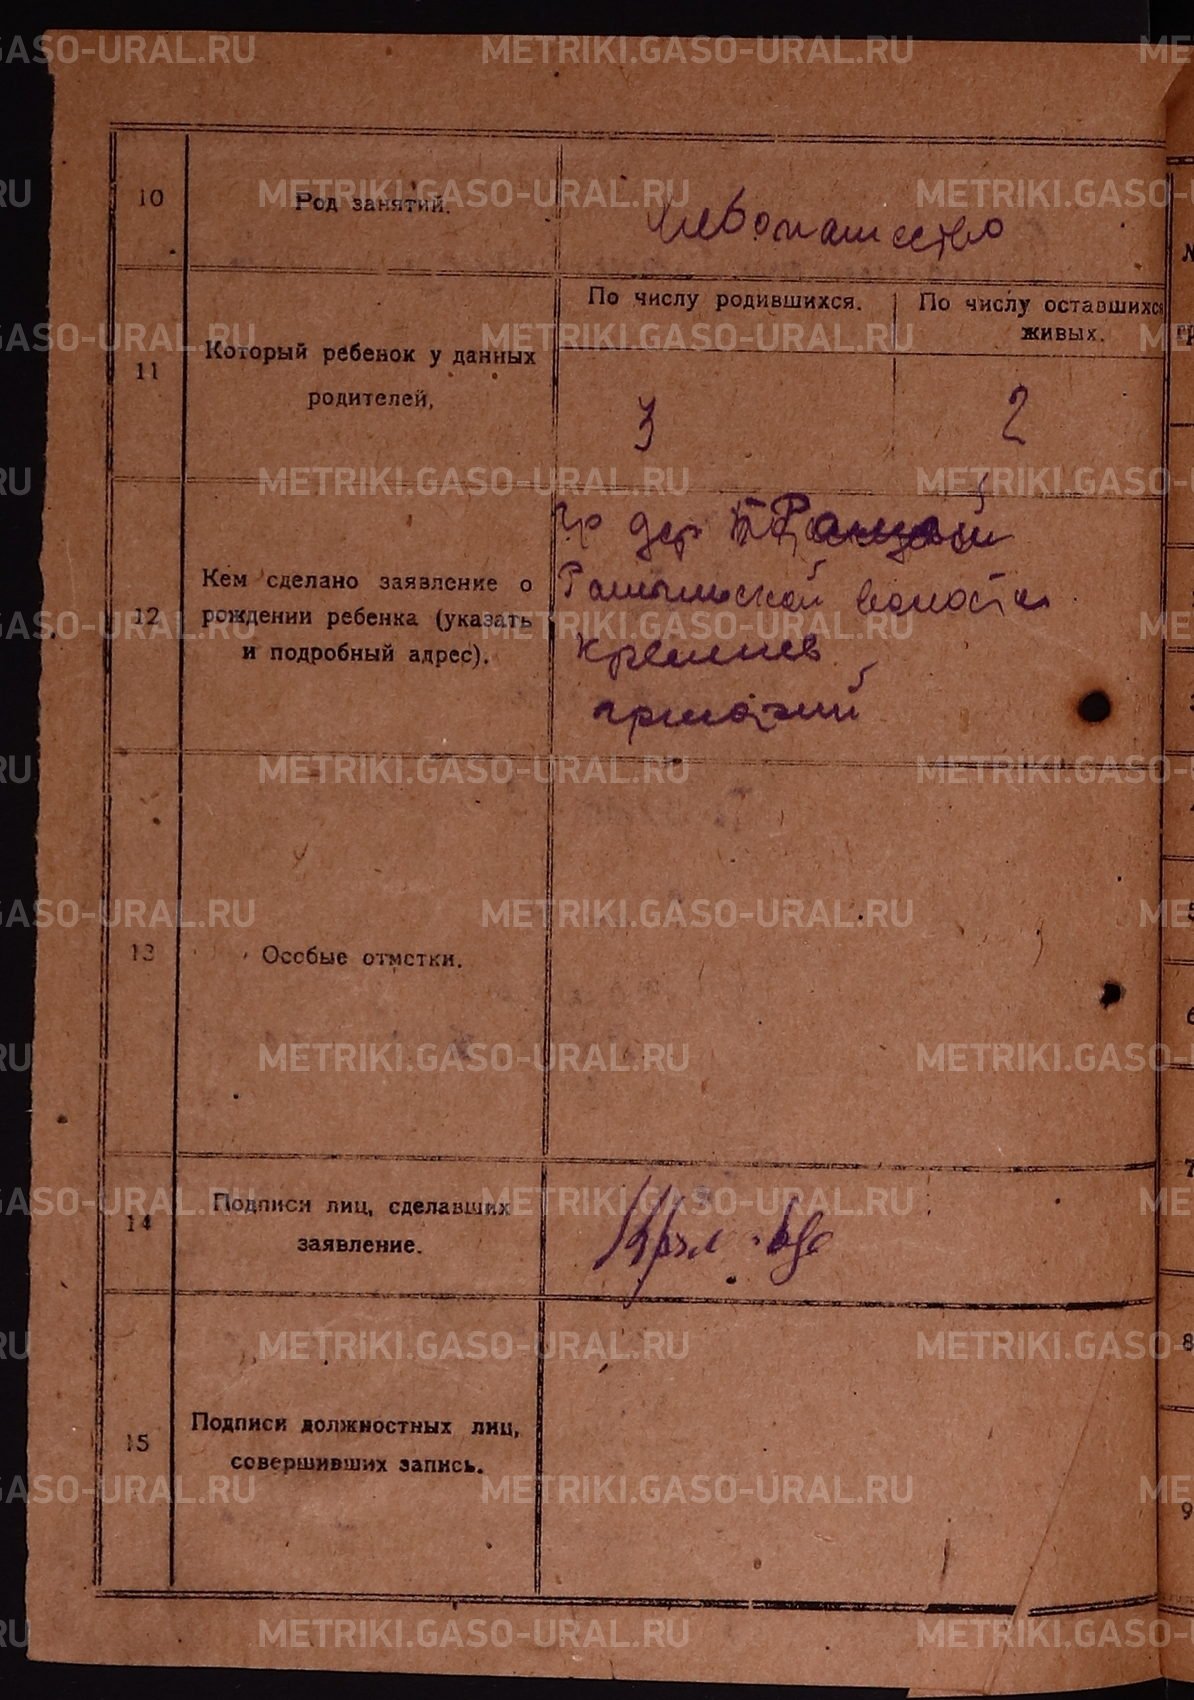 10
Род занятий.
хлебопашество
11
Который ребенок у данных
родителей,
По числу родившихся.
По числу оставшихся
живых.
3
2
12
Кем сделано заявление о
рождении ребенка (указать
и подробный адрес).
гр дер
волости
13
Особые отметки.
14
Подписи лиц, сделавших
заявление.
15
Подписи должностных лиц,
совершивших запись.
METRIKI.GASO-URAL.RU